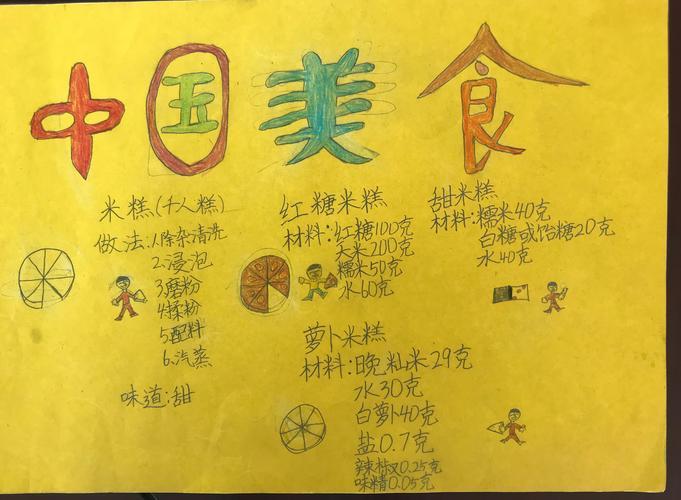 中国美食
米糕(千人糕)
做法:1.除杂清洗
2.浸泡
3磨粉
4揉粉
5配料
6.汽蒸
味道:甜
红糖米糕
材料:红糖100克
大米200克
糯米50克
水60克
甜米糕
材料:糯米40克
白糖或饴糖20克
水40克
萝卜米糕
材料:晚籼米29克
水30克
白萝卜40克
盐0.7克
辣椒0.25克
味精0.05克